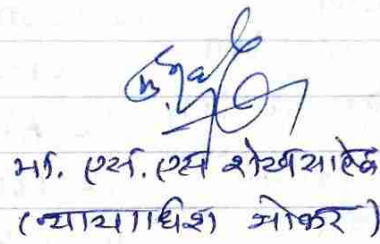 मा. एस. एस शेख साहेब
(न्यायाधिश भोकर)